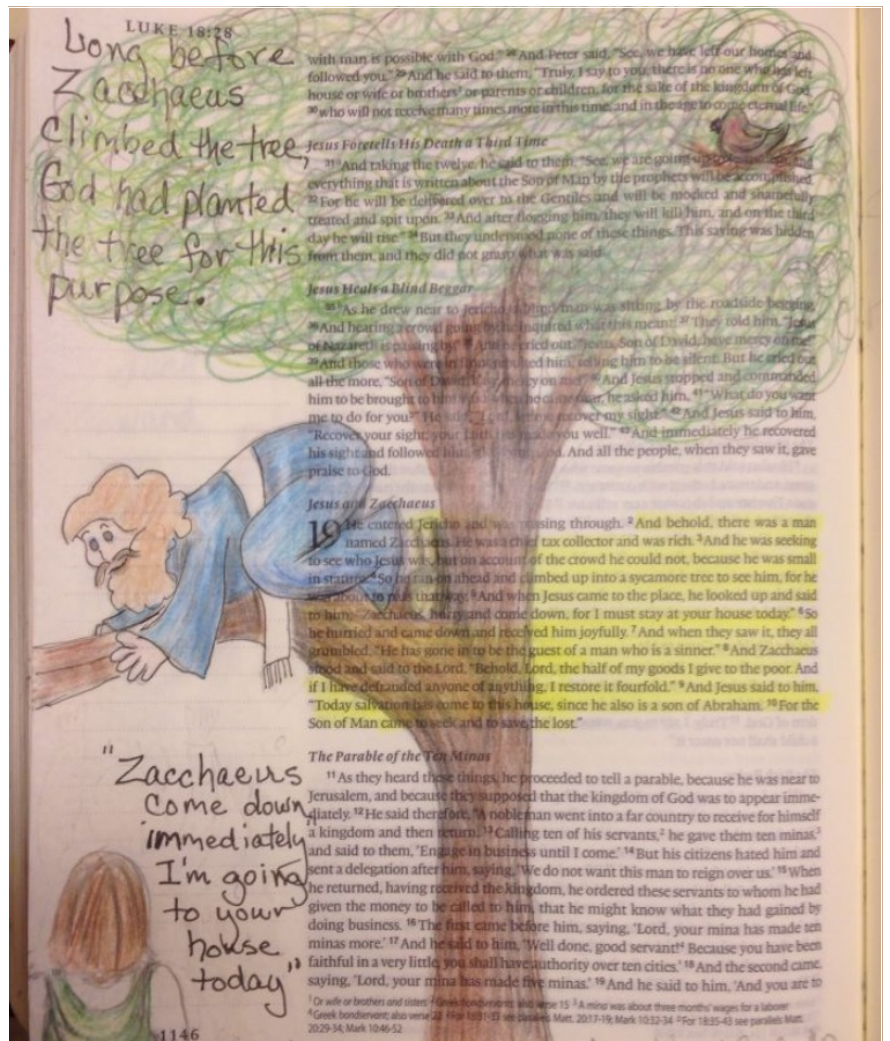 LUKE 18:28
Long before
Zacchaeus
climbed the tree,
God had planted
the tree for this
purpose.
with man is possible with God." 28 And Peter said, "See, we have left our homes and
followed you." 29 And he said to them, "Truly, I say to you, there is no one who has left
house or wife or brothers1 or parents or children, for the sake of the kingdom of God,
30 who will not receive many times more in this time, and in the age to come eternal life."
Jesus Foretells His Death a Third Time
31 And taking the twelve, he said to them, "See, we are going up to and
everything that is written about the Son of Man by the prophets will be accomplished.
32 For he will be delivered over to the Gentiles and will be mocked and shamefully
treated and spit upon. 33 And after flogging him, they will kill him, and on the third
day he will rise." 34 But they understood none of these things. This saying was hidden
from them, and they did not grasp what was said.
Jesus Heals a Blind Beggar
35 As he drew near to Jericho a blind man was sitting by the roadside begging.
36 And hearing a crowd going by he inquired what this meant. 37 They told him, "Jesus
of Nazareth is passing by." And he cried out, "Jesus, Son of David, have mercy on me!"
39 And those who were in him, telling him to be silent. But he cried out
all the more, "Son of David, mercy on me!" 40 And Jesus stopped and commanded
him to be brought to him. when he came near, he asked him, 41 "What do you want
me to do for you?" He said, recover my sight." 42 And Jesus said to him,
"Recover your sight; your faith has made you well." 43 And immediately he recovered
his sight and followed him, God. And all the people, when they saw it, gave
praise to God.
Jesus and Zacchaeus
19 He entered Jericho and was passing through. 2 And behold, there was a man
named Zacchaeus. He was a chief tax collector and was rich. 3 And he was seeking
to see who Jesus was, but on account of the crowd he could not, because he was small
in stature. 4 So he ran on ahead and climbed up into a sycamore tree to see him, for he
was about to pass that way. 5 And when Jesus came to the place, he looked up and said
to him, "Zacchaeus, hurry and come down, for I must stay at your house today." 6 So
he hurried and came down and received him joyfully. 7 And when they saw it, they all
grumbled, "He has gone in to be the guest of a man who is a sinner." 8 And Zacchaeus
stood and said to the Lord, "Behold, Lord, the half of my goods I give to the poor. And
if I have defrauded anyone of anything, I restore it fourfold." 9 And Jesus said to him,
"Today salvation has come to this house, since he also is a son of Abraham. 10 For the
Son of Man came to seek and to save the lost."
The Parable of the Ten Minas
11 As they heard these things, he proceeded to tell a parable, because he was near to
Jerusalem, and because they supposed that the kingdom of God was to appear imme-
diately. 12 He said therefore, "A nobleman went into a far country to receive for himself
a kingdom and then return. 13 Calling ten of his servants,2 he gave them ten minas,3
and said to them, 'Engage in business until I come.' 14 But his citizens hated him and
sent a delegation after him, saying, 'We do not want this man to reign over us.' 15 When
he returned, having received the kingdom, he ordered these servants to whom he had
given the money to be called to him, that he might know what they had gained by
doing business. 16 The first came before him, saying, 'Lord, your mina has made ten
minas more.' 17 And he said to him, 'Well done, good servant!4 Because you have been
faithful in a very little, you shall have authority over ten cities.' 18 And the second came,
saying, 'Lord, your mina has made five minas.' 19 And he said to him, 'And you are to
1 Or wife or brothers and sisters 2 Greek bondservants; also verse 15 3 A mina was about three months' wages for a laborer
4 Greek bondservant; also verse 22 For 18:31-33 see parallels Matt. 20:17-19; Mark 10:32-34 For 18:35-43 see parallels Matt.
20:29-34; Mark 10:46-52
"Zacchaeus
come down
immediately
I'm going
to your
house
today"
1146